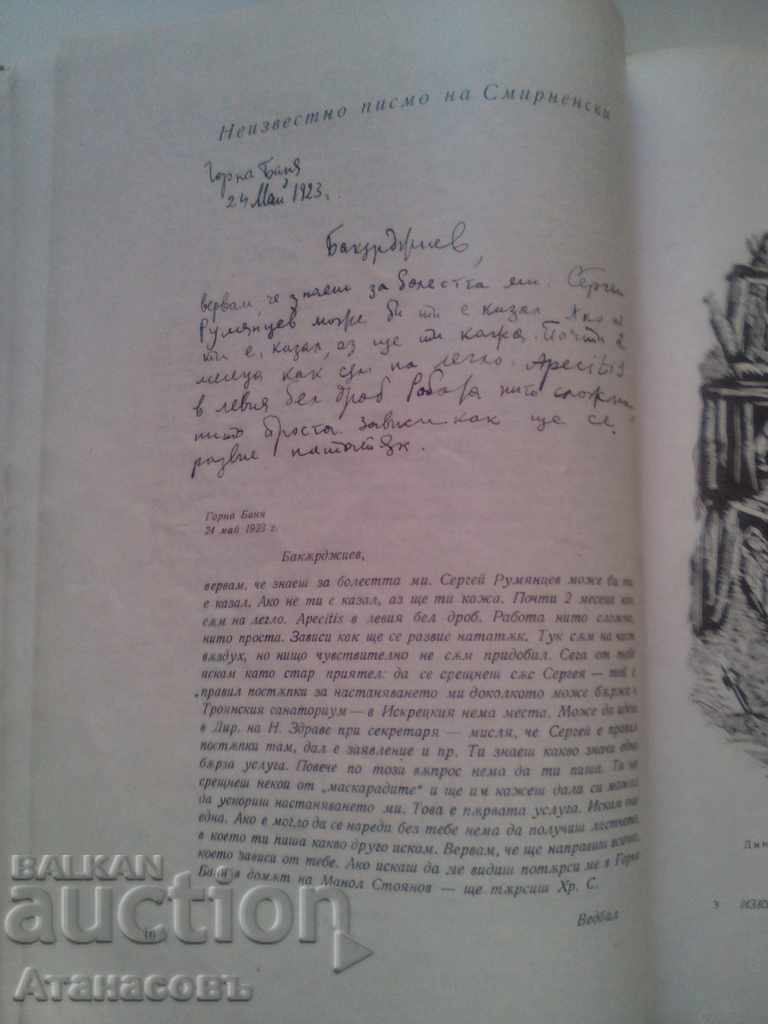 Неизвестно писмо на Смирненски
Горна Баня
24 Май 1923 г.
Бакѫрджиев,
вервам, че знаеш за болестта ми. Сергей
Румянцев може би ти е казал. Ако не
ти е казал, аз ще ти кажа. Почти 2
месеца как сѫм на легло. Apecitis
в левия бел дроб. Работа нито сложна
нито проста. Зависи как ще се
развие нататѫк.
Горна Баня
24 май 1923 г.
Бакѫрджиев,
вервам, че знаеш за болестта ми. Сергей Румянцев може би ти
е казал. Ако не ти с казал, аз ще ти кажа. Почти 2 месеца как
сѫм на легло. Apecitis в левия бел дроб. Работа нито сложна,
нито проста. Зависи как ще се развие нататѫк. Тук сѫм на чист
вѫздух, но нищо чувствително не сѫм придобил. Сега от тебе
искам като стар приятел: да се срещнеш сѫс Сергея — той е
правил постѫпки за настаняването ми доколкото може бѫрже в
Троянския санаториум — в Искрецкия нема места. Може да идеш
в Дир. на Н. Здраве при секретаря — мисля, че Сергей е правил
постѫпки там, дал е заявление и пр. Ти знаеш какво значи една
бѫрза услуга. Повече по този вѫпрос нема да ти пиша. Ти че
срещнеш некои от „маскарадите“ и ще им кажеш дали си можал
да ускориш настаняването ми. Това е пѫрвата услуга. Искам още
една. Ако е могло да се нареди без тебе нема да получиш листчето,
в което ти пиша какво друго искам. Вервам, че ще направиш всичко,
което зависи от тебе. Ако искаш да ме видиш потѫрси ме в Горна
Баня в домѫт на Манол Стоянов — ще тѫрсиш Хр. С.
Ведбал
16
3
BALKAN
auction
Атанасовъ